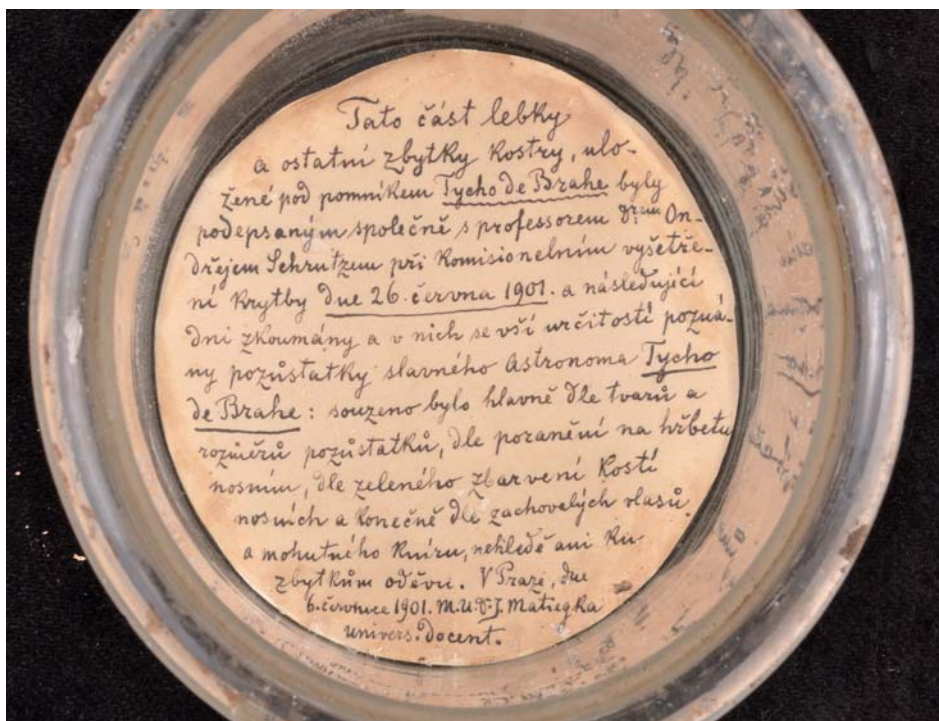 Tato část lebky
a ostatní zbytky kostry, ulo-
žené pod pomníkem Tycho de Brahe byly
podepsaným společně s professorem Drem On-
dřejem Schrutzem při komisionelním vyšetře-
ní krytby dne 26. června 1901. a následující
dni zkoumány a v nich se vší určitostí pozná-
ny pozůstatky slavného Astronoma Tycho
de Brahe: souzeno bylo hlavně dle tvarů a
rozměrů pozůstatků, dle poranění na hřbetu
nosním, dle zeleného zbarvení kostí
nosních a konečně dle zachovalých vlasů
a mohutného kníru, nehledě ani ku
zbytkům oděvu. V Praze, dne
6. července 1901. M.U.Dr. J. Matiegka
univers. docent.